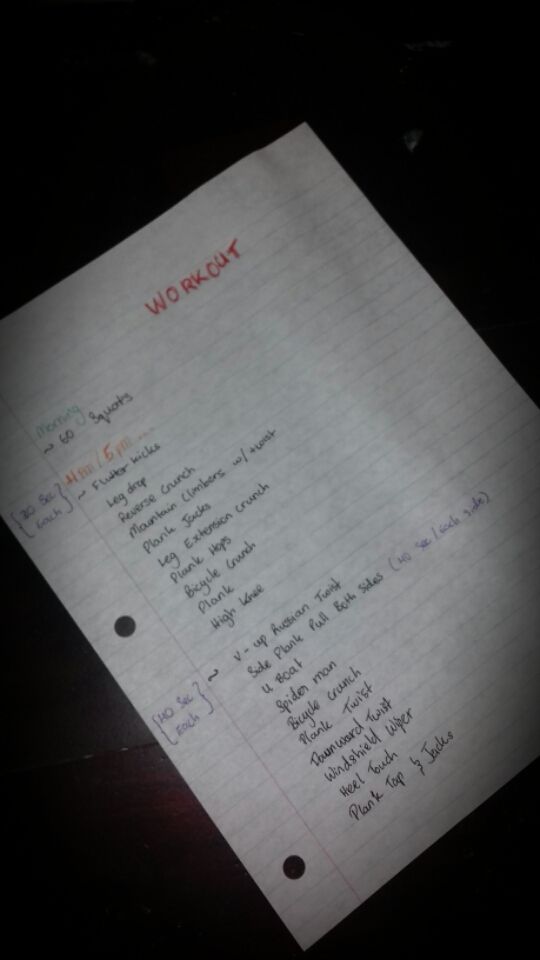 WORKOUT
Morning
~ 60 Squats
4pm / 5pm ...
[30 Sec Each]
~ Flutter kicks
Leg drop
Reverse crunch
Mountain Climbers w/ twist
Plank Jacks
Leg Extension crunch
Plank Hops
Bicycle Crunch
Plank
High Knee
[40 Sec Each]
~ V-up Russian Twist
Side Plank Pull Both Sides (40 Sec / Each side)
U Boat
Spider man
Bicycle crunch
Plank Twist
Downward Twist
Windshield Wiper
Heel Touch
Plank Tap & Jacks